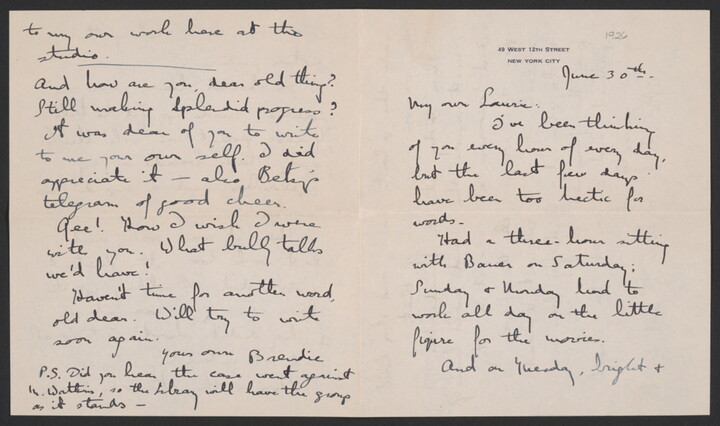 to my own work here at the
studio.
And how are you, dear old thing?
Still making splendid progress?
It was dear of you to write
to me your own self. I did
appreciate it – also Betsy's
telegram of good cheer.
Gee! How I wish I were
with you. What bully talks
we'd have!
Haven't time for another word,
old dear. Will try to write
soon again.
Your own Brendie
P.S. Did you hear the case went against
M. Watkins, so the Library will have the group
as it stands –
1926
49 WEST 12TH STREET
NEW YORK CITY
June 30th.
My own Laurie:
I've been thinking
of you every hour of every day,
but the last few days
have been too hectic for
words.
Had a three-hour sitting
with Bauer on Saturday;
Sunday & Monday had to
work all day on the little
figure for the movies.
And on Tuesday, bright &